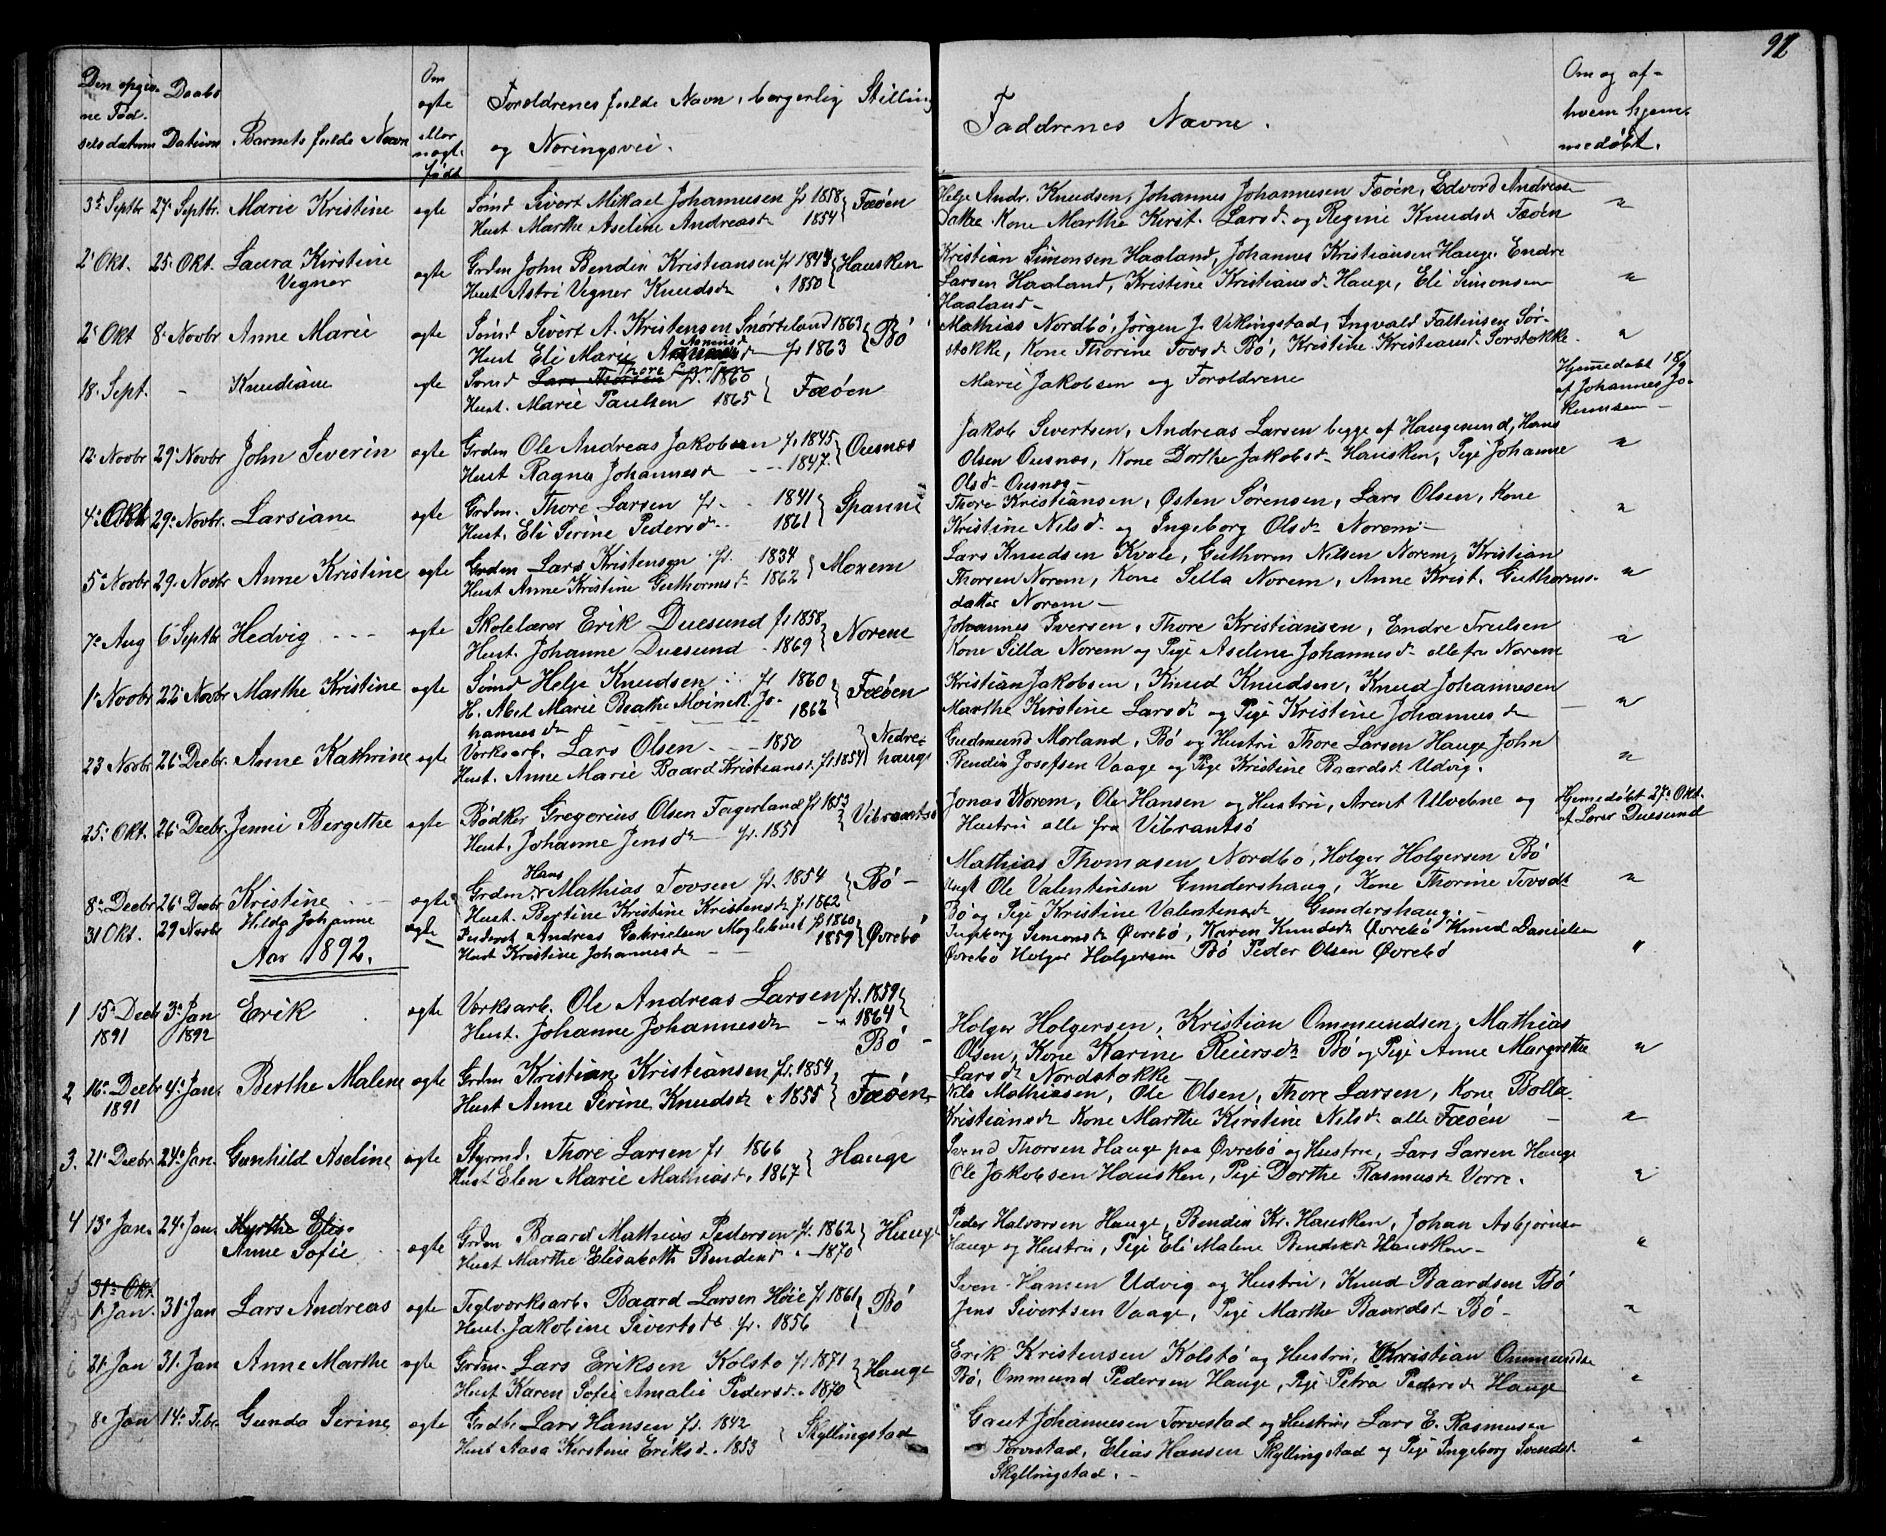 92
Den opgiv- Daabs Om Foreldrenes fulde Navn, borgerlig Stilling Faddrenes Navne. Om og af-
ne Fød- Datum Barnets fulde Navn egte og Neringsvei. hvem hjem-
selsdatum eller uegte født medøbt.
3' Septbr 27' Septbr. Marie Kristine egte Sømd Sivert Mikael Johannesen f. 1858 } Fæøen Helje Andr. Knudsen, Johannes Johannesen Fæøen, Edvard Andreas "
Hust Marthe Aseline Andreasd 1854 Kone Marthe Kirst. Larsd. og Regine Knudsd Fæøen
2' Okt. 25' Okt. Laura Kirstine egte Grdm John Bendix Kristiansen f. 1844 } Hausken Kristian Simonsen Haaland, Johannes Kristiansen Hauge. Endre "
Vegner Hust Astri Vegner Knudsd " 1850 Larsen Haaland, Kristine Kristiansd. Hauge, Eli Simonsen
Haaland -
2' Okt 8' Novbr Anne Marie egte Sømd Sivert A. Kristensen Snørteland 1863 } Bø Mathias Nordbø, Jørgen J. Vikingstad, Ingvald Faltinsen Sør- "
Hust Eli Marie Asmusd f. 1863 støkke, Kone Thorine Tovsd Bø, Kristine Kristiansd Sørstøkke.
18' Sept. - Knudiane egte Sømd Lars Thorsen Thore Larsen f. 1860 } Fæøen Marie Jakobsen og Foreldrene Hjemedøbt 18/9
Hust. Marie Paulsen 1865 af Johannes Jo-
12' Novbr 29' Novbr John Severin egte Grdm Ole Andreas Jakobsen f. 1845 } Ousnes Jakob Sivertsen, Andreas Larsen begge af Haugesund, Hans "
Hust Ragna Johannesd - - 1847. Olsen Ousnes, Kone Dorthe Jakobsd Hausken, Pige Johanne
Olsd- Ousnes -
4' Okt 29' Novbr. Larsiane egte Grdm. Thore Larsen f. 1841 } Spanne Thore Kristiansen, Østen Sørensen, Lars Olsen, Kone "
Hust. Eli Serine Pedersd. 1861 Kristine Nilsd og Ingeborg Olsd Norem -
5' Novbr 29' Novbr Anne Kristine egte Grdm Lars Kristensen f. 1834 } Norem Lars Knudsen Kvale, Guthorm Nilsen Norem, Kristian "
Hust Anne Kristine Guthormsd 1862 Thorsen Norem, Kone Silla Norem, Anne Krist. Guthorms-
datter Norem -
7' Aug 6' Septbr Hedvig - - - egte Skolelærer Erik Duesund f. 1858 } Norem Johannes Iversen, Thore Kristiansen, Endre Trulsen "
Hust. Johanne Duesund - 1869 Kone Silla Norem og Pige Aseline Johannesd alle fra Norem
1' Novbr 22' Novbr Marthe Kristine egte Sømd Helje Knudsen f. 1860 } Fæøen Kristian Jakobsen, Knud Knudsen, Knud Johannesen "
H. Abel Marie Beathe Jo- 1862 Marthe Kirstine Larsd og Pige Kristine Johannesd
hannesd
23 Novbr 26' Decbr. Anne Kathrine egte Verksarb. Lars Olsen - - 1850 } Nedre- Gudmund Morland, Bø og Hustru Thore Larsen Hauge John "
Hust. Anne Marie Baard Kristiansd f. 1854 hauge Bendix Josefsen Vaage og Pige Kristine Baardsd Udvig.
25' Okt. 26' Decbr. Jenni Bergitte egte Bødker Gregorius Olsen Fagerland f. 1853 } Vibrantsø Jonas Norem, Ole Hansen og Hustru, Arent Ulvehne og Hjemedøbt 27' Okt.
Hust. Johanne Jensd - f. 1851 Hustru alle fra Vibrantsø af Lærer Duesund
8' Decbr 26' Decbr Kristine - - egte Grdm Hans Mathias Tovsen f. 1854 } Bø - Mathias Thomasen Nordbø, Holger Holgersen Bø "
Hust. Bertine Kristine Kristensd f. 1862 Ungk Ole Valentinsen Gundershaug, Kone Thorine Tovsd
Bø og Pige Kristine Valentinsd Gundershaug. -
31 Okt. 29 Novbr Hilda Johanne egte Andreas Gabrielsen Moglebust f. 1860 } Øvrebø Ingeborg Simonsd Øvrebø, Karen Knudsd Øvrebø Knud Danielsen "
Hust Kristine Johannesd 1859 Øvrebø Holger Holgersen Bø Peder Olsen Øvrebø
Aar 1892.
1 15' Decbr 3' Jan Erik egte Verksarb. Ole Andreas Larsen f. 1859 } Holger Holgersen, Kristian Ommundsen, Mathias "
1891 1892 Hust. Johanne Johannesd - " 1864 Bø - Olsen, Kone Karine Reiersd Bø og Pige Anne Margrethe
Larsd Nordstokke
2 16' Decbr 4' Jan. Berthe Malene egte Grdm Kristian Kristiansen f. 1854 } Fæøen - Nils Mathiasen, Ole Olsen, Thore Larsen, Kone Bolla "
1891 Hust Anne Serine Knudsd " 1855 Kristiansd Kone Marthe Kirstine Nilsd alle Fæøen
3. 21' Decbr 24' Jan. Gunhild Aseline egte Styrmd. Thore Larsen f. 1866 } Hauge Svend Thorsen Hauge paa Øvrebø og Hustru, Lars Larsen Hauge "
Hust Elen Marie Mathiasd. 1867 Ole Jakobsen Hausken, Pige Dorthe Rasmusd Vorre.
4 13' Jan. 24' Jan. Myrthe Elis- egte Grdm Baard Mathias Pedersen f. 1862 } Hauge Peder Halvorsen Hauge, Bendix Kr. Hausken, Johan Asbjørnsen "
Anne Sofie Hust Marthe Elisabeth Bendixd " - 1870 Hauge og Hustru, Pige Eli Malene Bendixd Hausken -
5 31' Okt. Sven Hansen Udvig og Hustru, Knud Baardsen Bø
1' Jan. 31' Jan Lars Andreas egte Teglverksarb. Baard Larsen Høie f. 1861 } Bø Jens Sivertsen Vaage, Pige Marthe Baardsd Bø - "
Hust. Jakobine Sivertsd f. 1856
6 21' Jan 31' Jan Anne Marthe egte Grdm. Lars Eriksen Kolstø f. 1871 } Hauge Erik Kristensen Kolstø og Hustru, Kristian Ommundsen "
Hust Karen Sofie Amalie Pedersd. " 1870 Bø, Ommund Pedersen Hauge, Pige Petra Pedersd Hauge
7 8' Jan 14' Febr Gunda Serine egte Grdbr Lars Hansen f. 1842 } Skyllingstad Gaut Johannesen Torvestad og Hustru, Lars E. Rasmusen "
Hust Aasa Kirstine Eriksd. " 1853 Torvestad, Elias Hansen Skyllingstad og Pige Ingeborg Svendsd
Skyllingstad. -